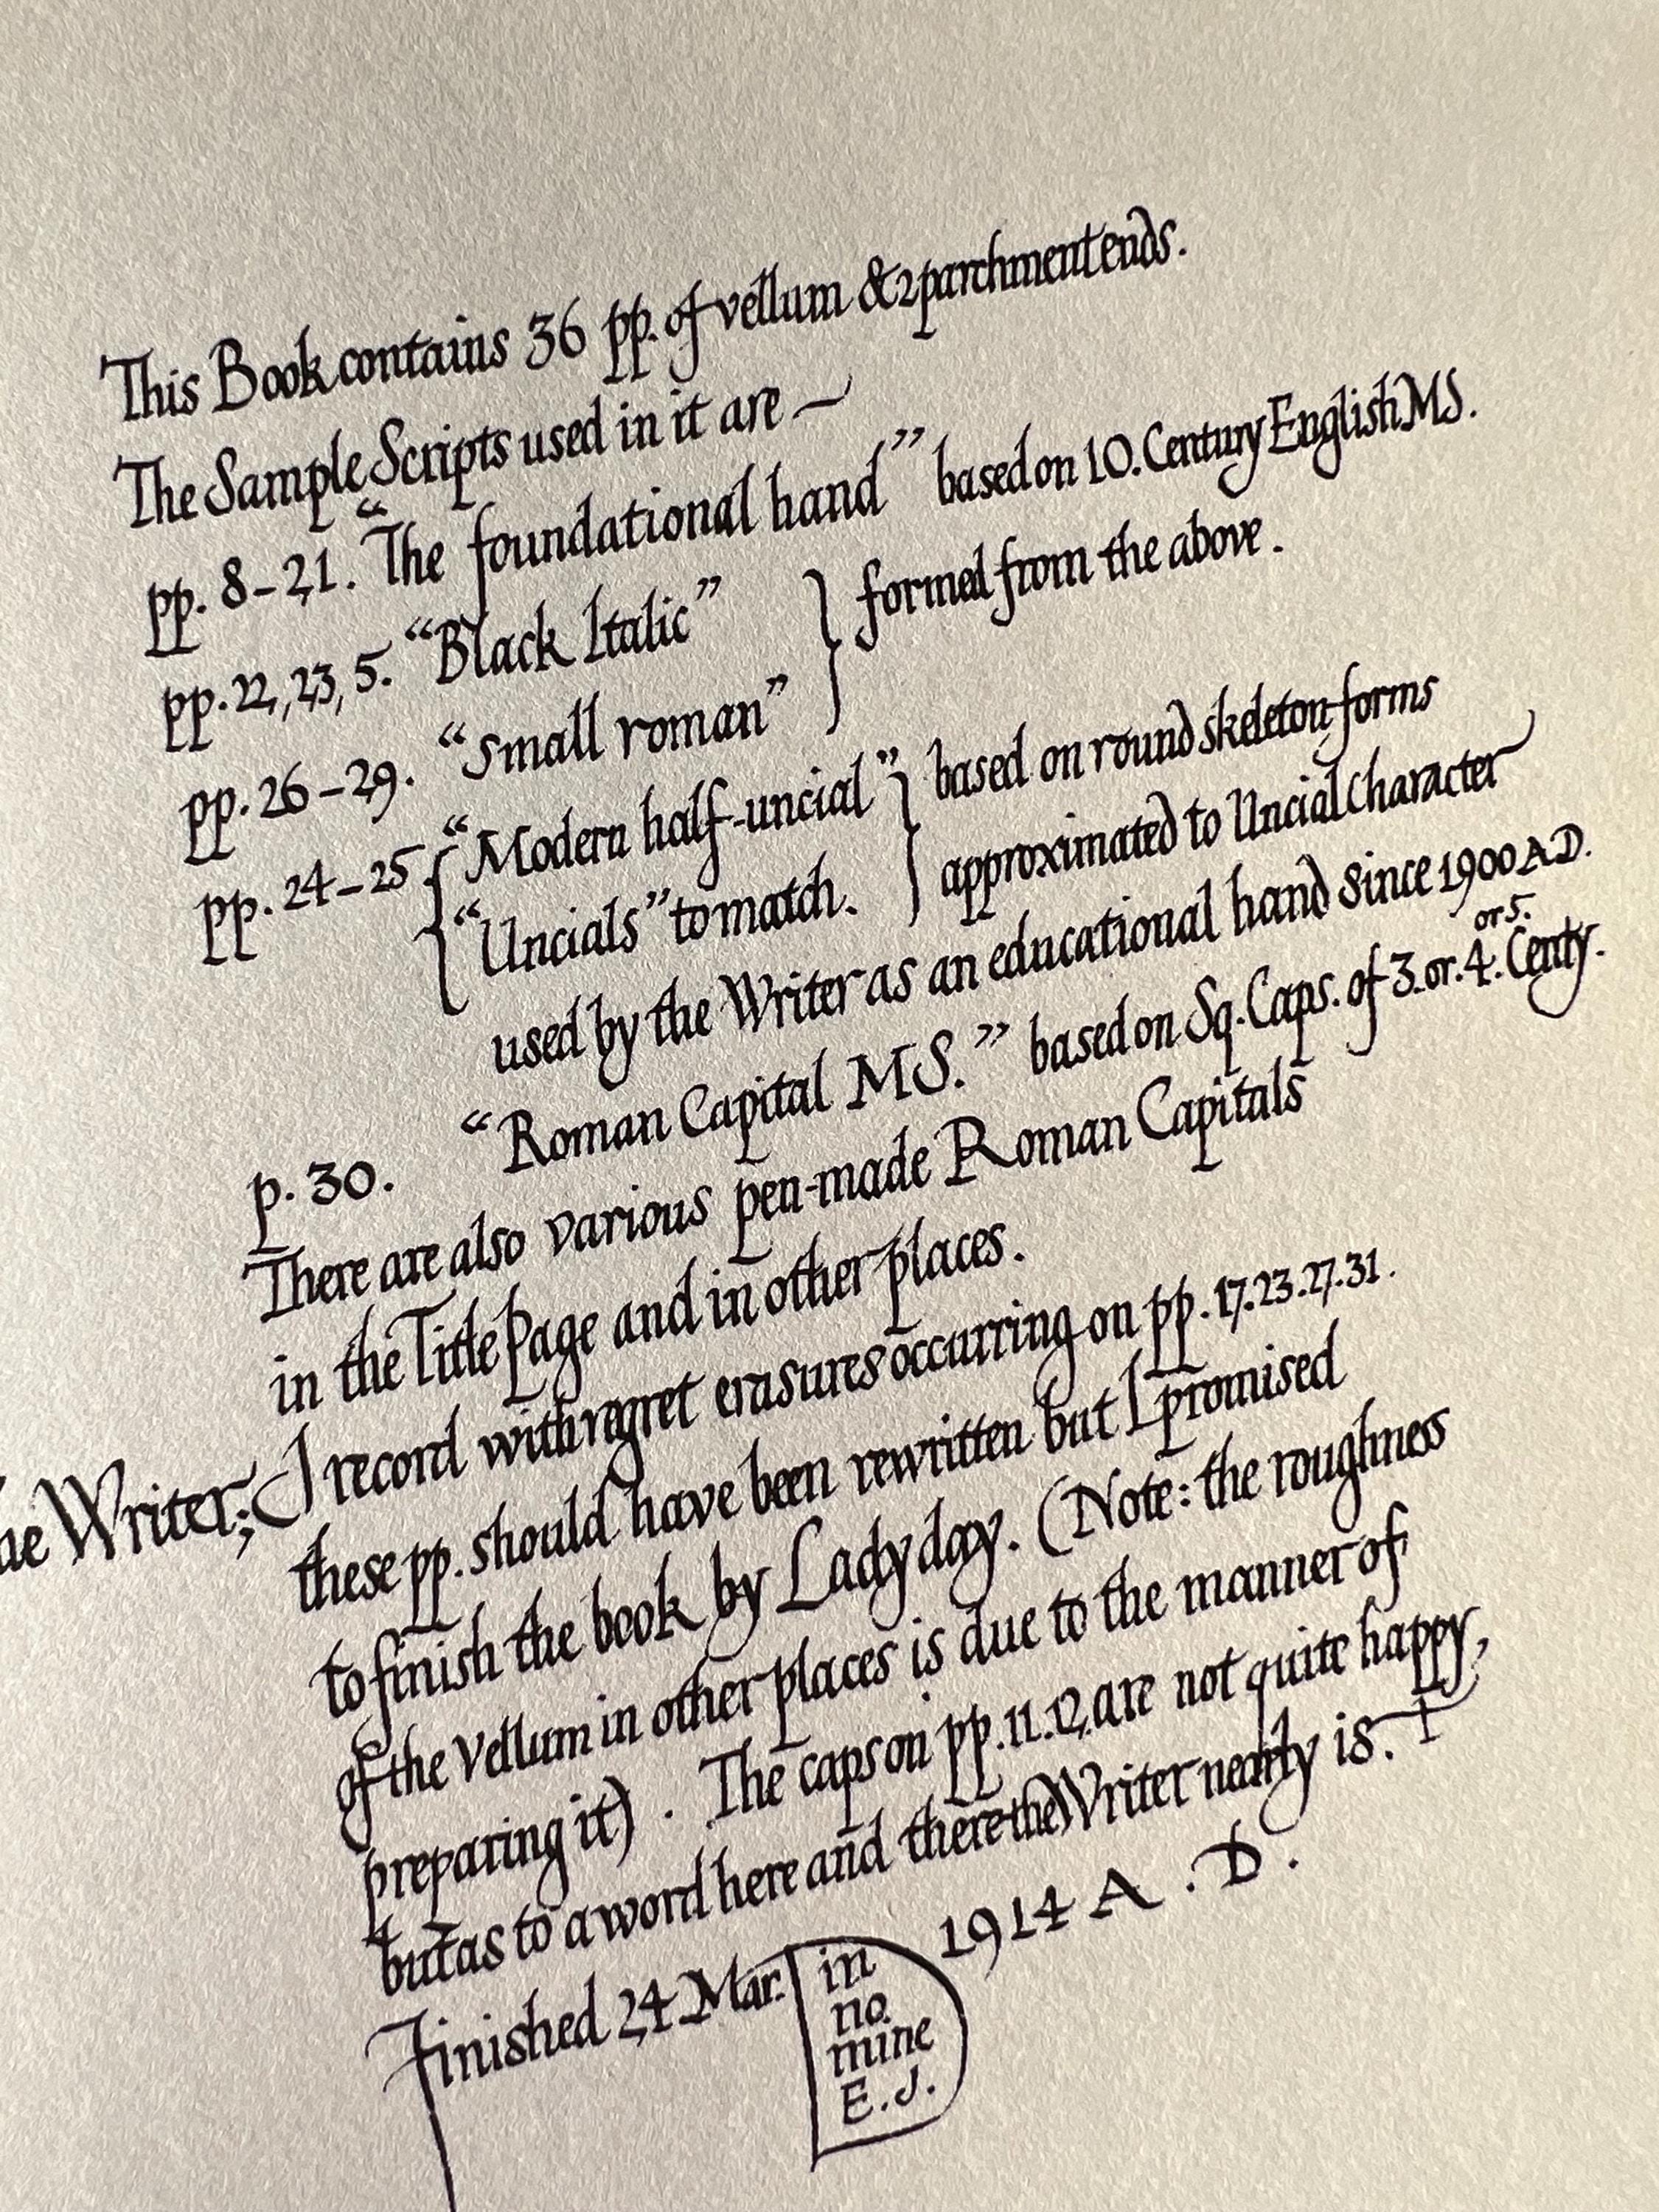 This Book contains 36 pp. of vellum & 2 parchment ends.
The Sample Scripts used in it are —
pp. 8–21. “The foundational hand” based on 10. Century English MS.
pp. 22, 23, 5. “Black Italic” } formed from the above.
pp. 26–29. “Small roman”
pp. 24–25 { “Modern half-uncial” } based on round skeleton forms
“Uncials” to match. approximated to Uncial Character
used by the Writer as an educational hand since 1900 A.D.
or 5.
p. 30. “Roman Capital MS.” based on Sq. Caps. of 3. or. 4. Centy.
There are also various pen-made Roman Capitals
in the Title Page and in other places.
Writer; I record with regret erasures occurring on pp. 17. 23. 27. 31.
these pp. should have been rewritten but I promised
to finish the book by Lady day. (Note: the roughness
of the vellum in other places is due to the manner of
preparing it). The caps on pp. 11. 12, are not quite happy,
but as to a word here and there the Writer nearly is. +
Finished 24 Mar. 1914 A.D.
in
no
mine
E.J.